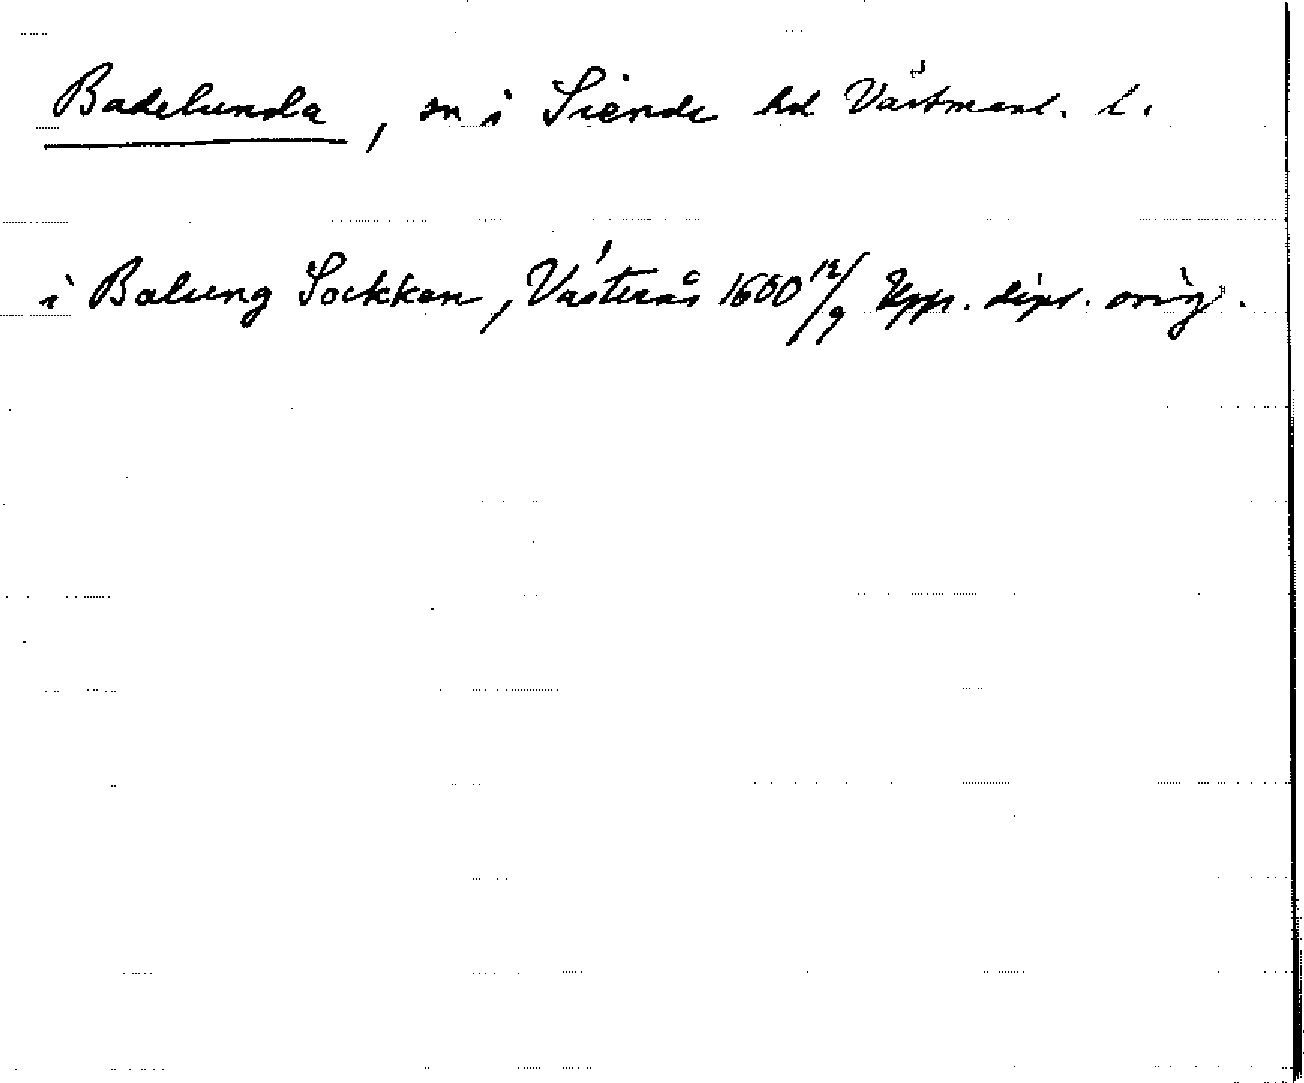 Badelunda, sn i Siende hd Västmanl. l.
i Balung Sockken, Västerås 1600 12/9 Upps. dipl. orig.